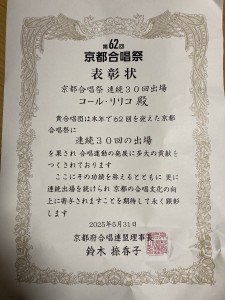 第62回
京都合唱祭
表彰状
京都合唱祭 連続30回出場
コール・リリコ 殿
貴合唱団は本年で62回を迎えた京都
合唱祭に
連続30回の出場
を果され 合唱運動の発展に多大の貢献を
つくされております
ここにその功績を称えるとともに 更に
連続出場を続けられ 京都の合唱文化の向
上に寄与されますことを期待して永く顕彰
します
2025年5月31日
京都府合唱連盟理事長
鈴木 捺香子